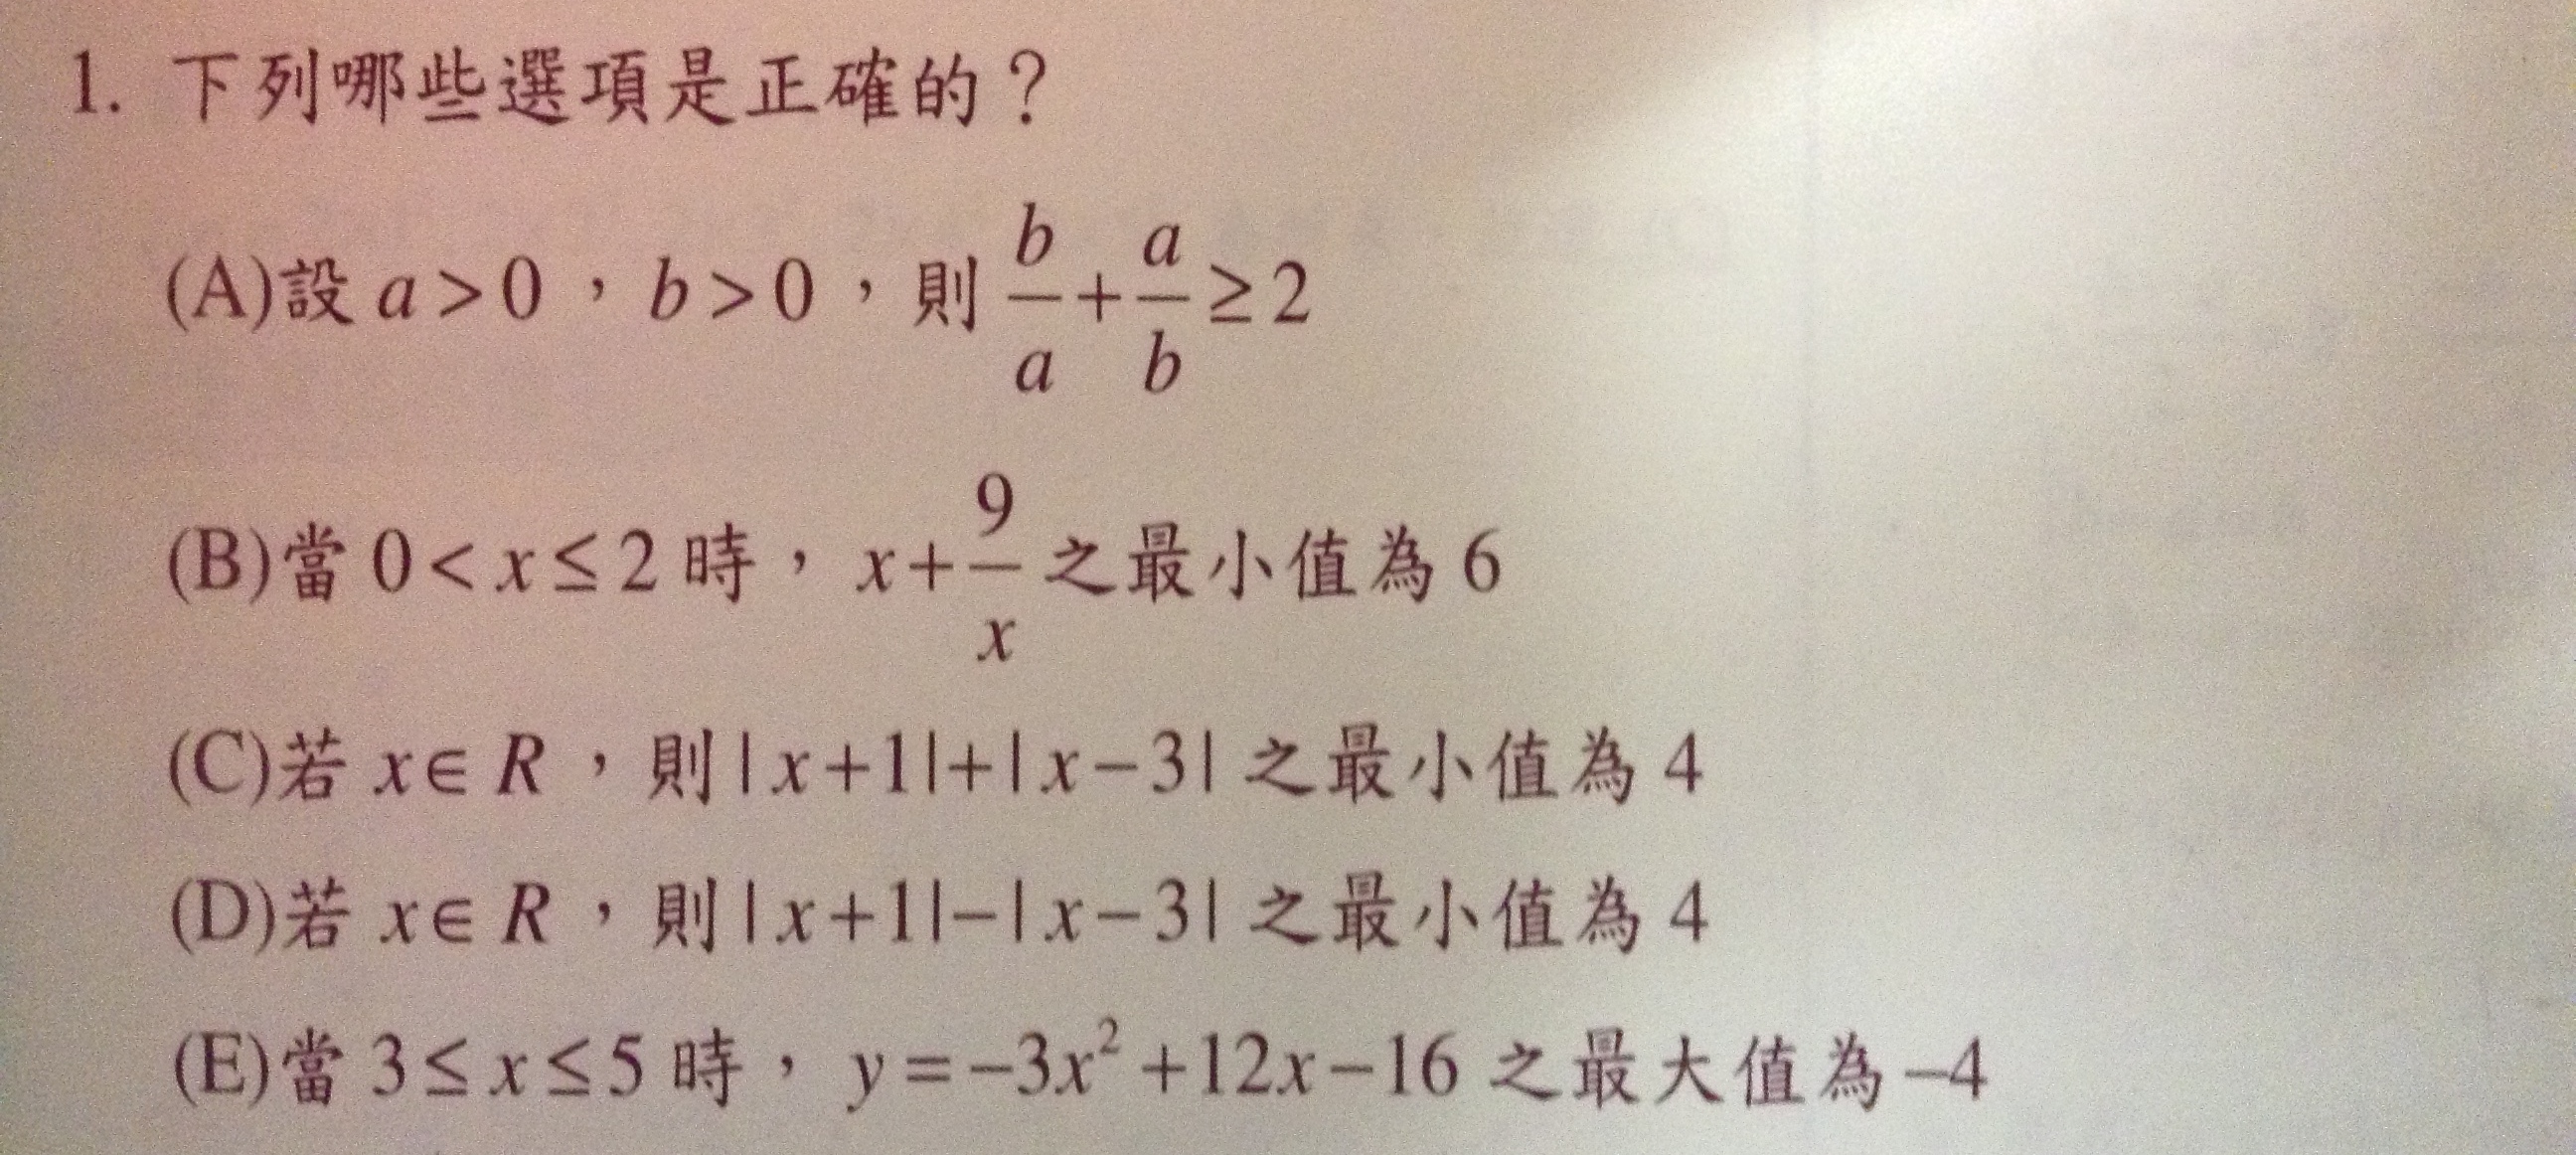 1. 下列哪些選項是正確的？
(A)設 a > 0 ， b > 0 ，則 b/a + a/b ≥ 2
(B)當 0 < x ≤ 2 時， x + 9/x 之最小值為 6
(C)若 x ∈ R ，則 | x + 1 | + | x − 3 | 之最小值為 4
(D)若 x ∈ R ，則 | x + 1 | − | x − 3 | 之最小值為 4
(E)當 3 ≤ x ≤ 5 時， y = −3x² + 12x − 16 之最大值為 −4